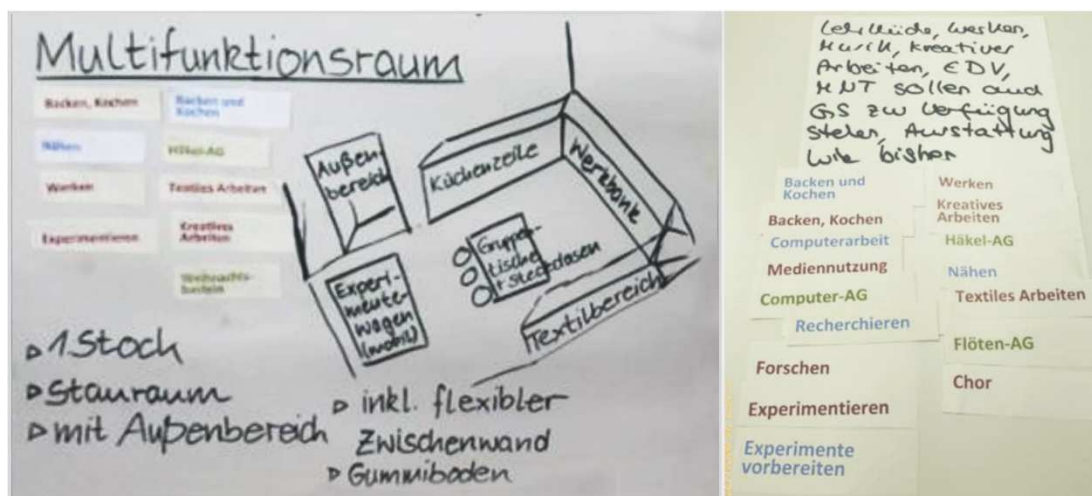 Multifunktionsraum
Backen, Kochen
Backen und
Kochen
Nähen
Häkel-AG
Werken
Textiles Arbeiten
Experimentieren
Kreatives
Arbeiten
Weihnachts-
basteln
Außen-
bereich
Küchenzeile
Werkbank
Gruppen-
tische
+ Steckdosen
Experi-
mente-
wagen
(mobil)
Textilbereich
▹ 1 Stock
▹ Stauraum
▹ mit Außenbereich
▹ inkl. flexibler
Zwischenwand
▹ Gummiboden
Lehrküche, Werken,
Musik, Kreatives
Arbeiten, EDV,
MNT sollen auch
GS zu Verfügung
stehen, Ausstattung
wie bisher
Backen und
Kochen
Backen, Kochen
Computerarbeit
Mediennutzung
Computer-AG
Recherchieren
Forschen
Experimentieren
Experimente
vorbereiten
Werken
Kreatives
Arbeiten
Häkel-AG
Nähen
Textiles Arbeiten
Flöten-AG
Chor